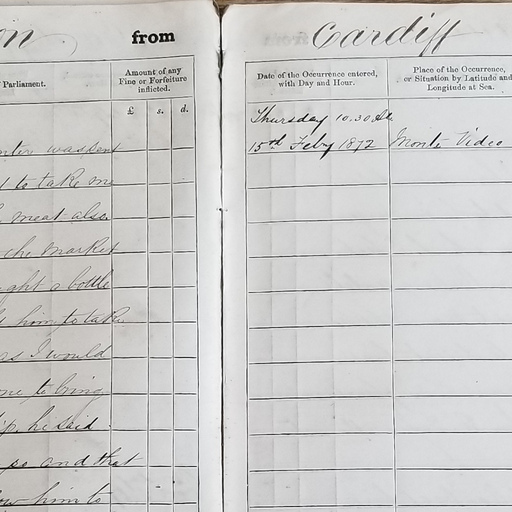 on from Cardiff
Parliament.
Amount of any
Fine or Forfeiture
inflicted.
£ s. d.
was sent
to take me
meat also
the market
a bottle
him to take
as I would
me to bring
he said
go and that
him to
Date of the Occurrence entered,
with Day and Hour.
Place of the Occurrence,
or Situation by Latitude and
Longitude at Sea.
Thursday 10.30
15th Feby 1872 Monte Video